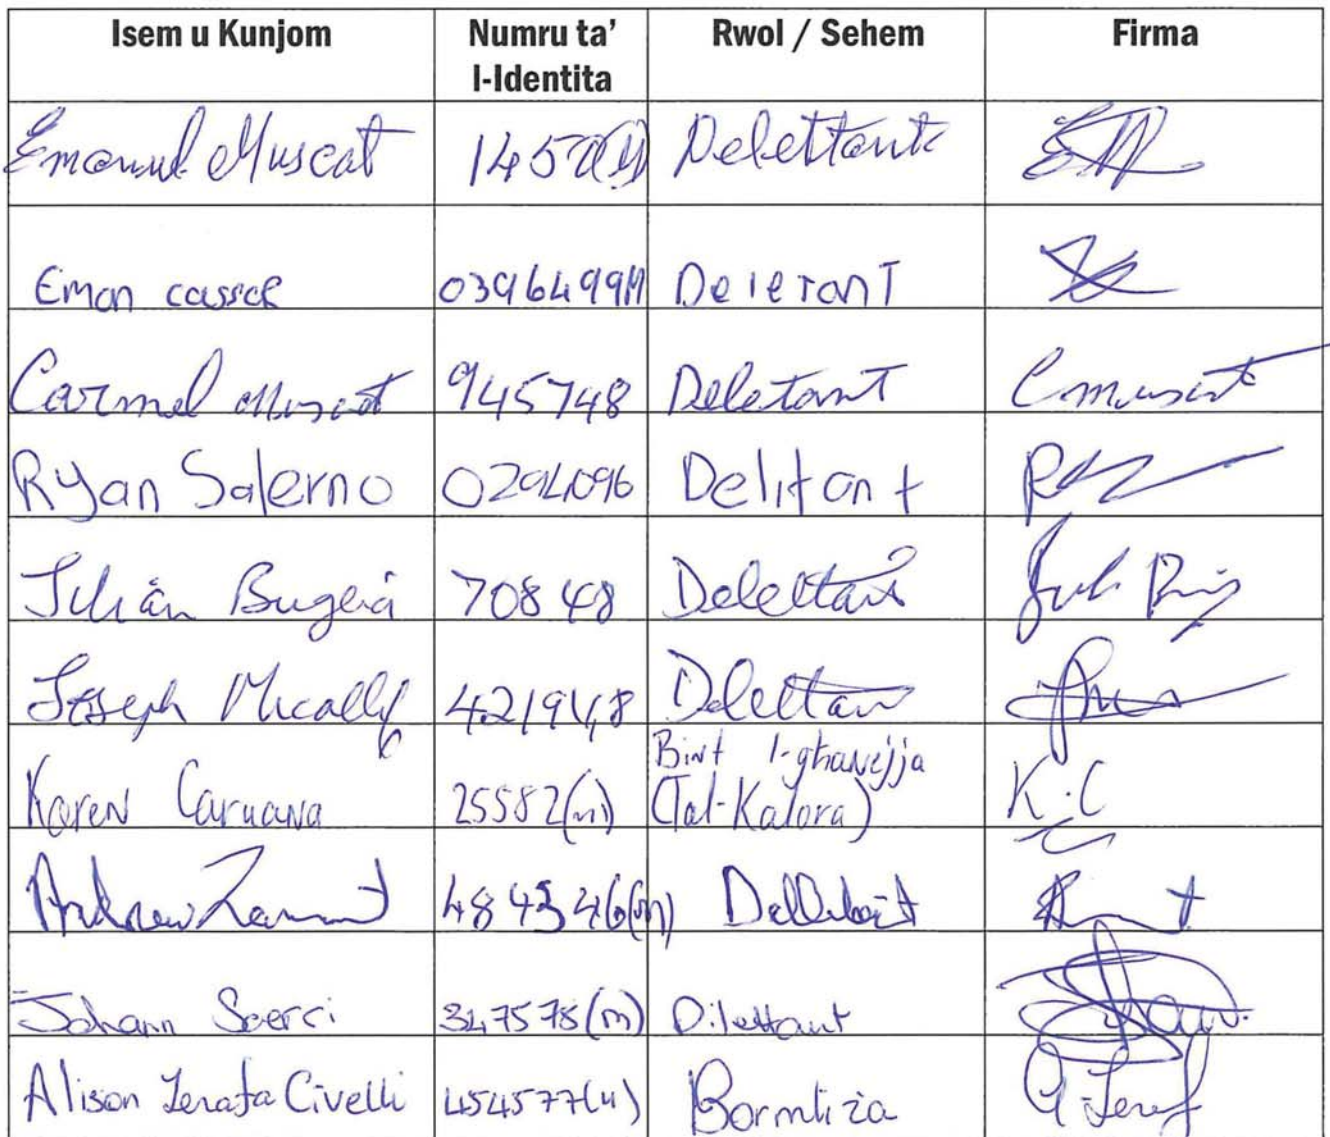 Isem u Kunjom Numru ta' l-Identita Rwol / Sehem Firma
Emanuel Muscat Delettant
Eman cassar 0396499M Deletant
Carmel Muscat 945748 Deletant C Muscat
Ryan Salerno 0294096 Delitant
Julian Bugeja 70848 Delettant
Joseph Micallef 421948 Delettant
Karen Caruana 25582(m) Bint l-ghanejja (Tal-Kalora) K.C
Andrew Zammit 484346(m)
Johann Scerri 347578(m) Dilettant
Alison Zerafa Civelli 454577(M) Bormliza A Zeraf